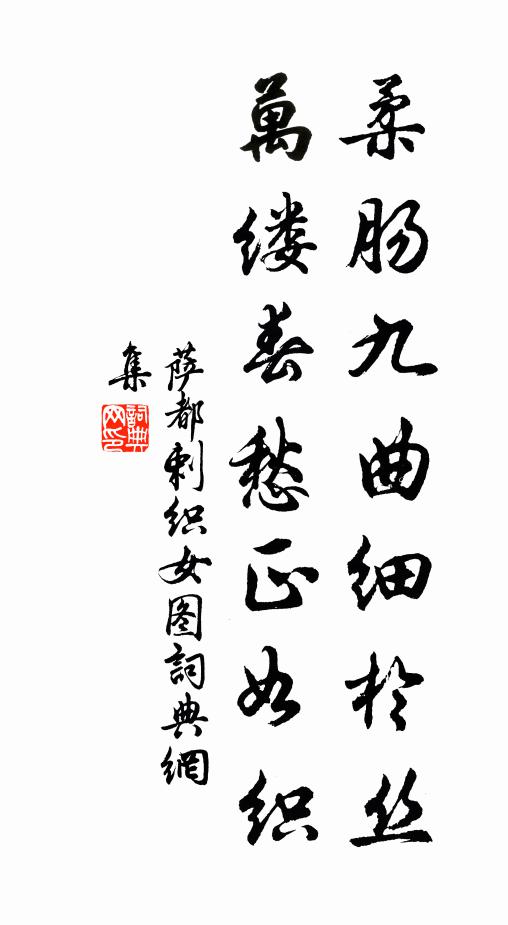 柔肠九曲细於丝
萬缕春愁正如织
萨都刺织女图詞典網
集
詞典
网印